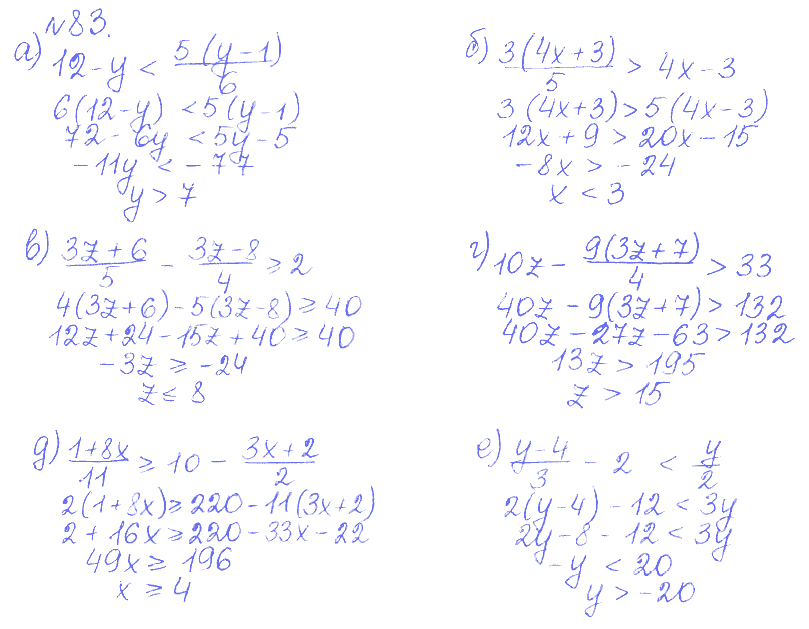 №83.
а) 12-y < 5(y-1)/6
6(12-y) <5(y-1)
72-6y <5y-5
-11y <-77
y>7
б) 3(4x+3)/5 > 4x-3
3(4x+3)>5(4x-3)
12x+9 > 20x-15
-8x > -24
x < 3
в) 3z+6/5 - 3z-8/4 ≥ 2
4(3z+6)-5(3z-8) ≥ 40
12z+24-15z+40 ≥ 40
-3z ≥ -24
z ≤ 8
г) 10z - 9(3z+7)/4 > 33
40z - 9(3z+7) > 132
40z-27z-63>132
13z > 195
z > 15
д) 1+8x/11 ≥ 10 - 3x+2/2
2(1+8x)≥220-11(3x+2)
2+16x≥220-33x-22
49x ≥ 196
x ≥ 4
е) y-4/3 - 2 < y/2
2(y-4)-12<3y
2y-8-12<3y
-y < 20
y>-20